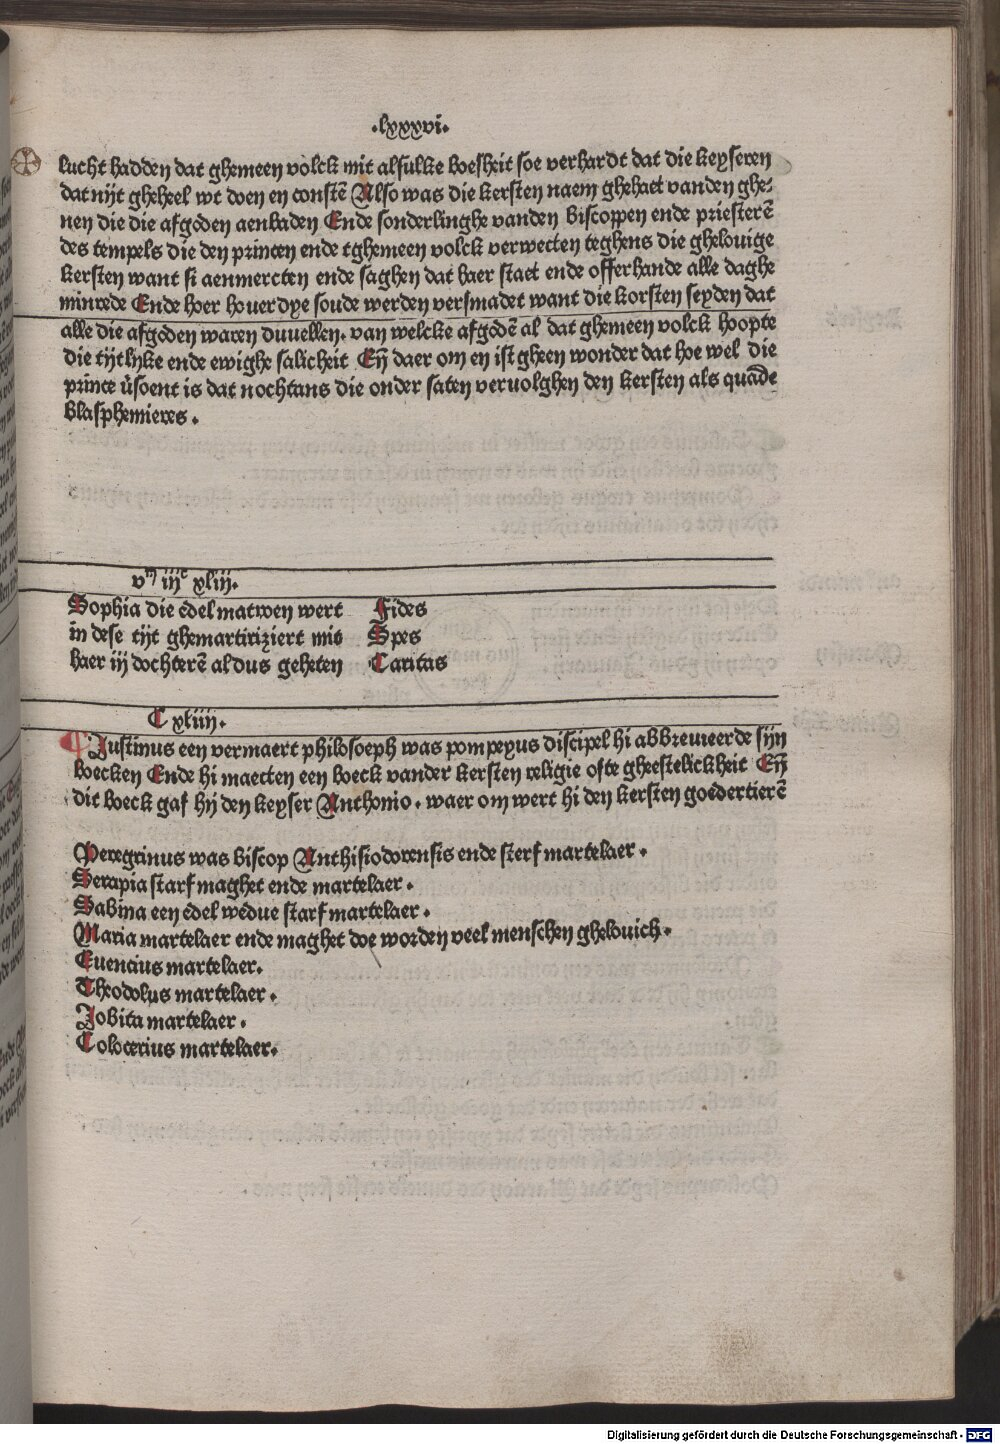 .lxxxvi.
lucht hadden dat ghemeen volck mit alsulke boesheit soe verhardt dat die keyseren
dat nijt gheheel wt doen en constē Also was die kersten naem ghehaet vanden ghe-
nen die die afgoden aenbaden Ende sonderlinghe vanden biscoppen ende priesterē
des tempels die den princen ende tghemeen volck verwecten teghens die ghelouige
kersten want si aenmercten ende saghen dat haer staet ende offerhande alle daghe
minrede Ende hoer houerdye soude werden versmadet want die korsten seyden dat
alle die afgoden waren duuellen. van welcke afgodē al dat ghemeen volck hoopte
die tijtlyke ende ewighe salicheit Eñ daer om en ist gheen wonder dat hoe wel die
prince v̄soent is dat nochtans die onder saten veruolghen den kersten als quade
blasphemieres.
vm iijc xliij.
Sophia die edel matroen wert
in dese tijt ghemartiriziert mit
haer iij dochterē aldus geheten
Fides
Spes
Caritas
C xliiij.
Justinus een vermaert philosoeph was pompeyus discipel hi abbreuieerde sijn
boecken Ende hi maecten een boeck vander kersten religie ofte gheestelickheit Eñ
dit boeck gaf hij den keyser Anthonio. waer om wert hi den kersten goedertierē
Peregrinus was biscop Anthisiodorensis ende sterf martelaer.
Serapia starf maghet ende martelaer.
Sabina een edel wedue starf martelaer.
Maria martelaer ende maghet doe worden veel menschen ghelouich.
Euencius martelaer.
Theodolus martelaer.
Jobita martelaer.
Colocerius martelaer.
Digitalisierung gefördert durch die Deutsche Forschungsgemeinschaft - DFG